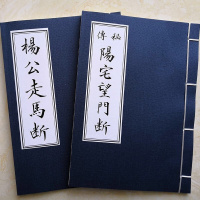 楊公走馬断
秘傳
陽宅望門斷